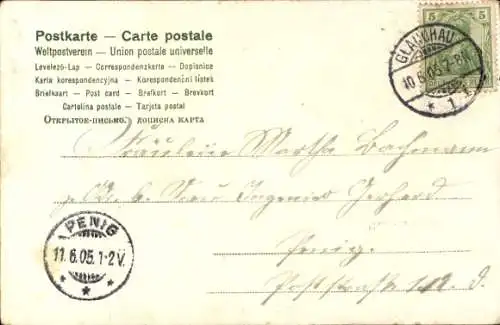 Postkarte — Carte postale
Weltpostverein — Union postale universelle
Levelező-Lap — Correspondenzkarte — Dopisnice
Karta korespondencyjna — Korespondenční lístek
Briefkaart — Post card — Brefkort — Brevkort
Cartolina postale — Tarjeta postal
Открытое-письмо. дописна карта
5 5
GLAUCHAU
10.6.05.7-8N.
* 1
Fräulein Martha Bachmann
Frau Ingenieur Gerhard
Penig.
Poststraße
PENIG
11.6.05.1-2V.
* * *